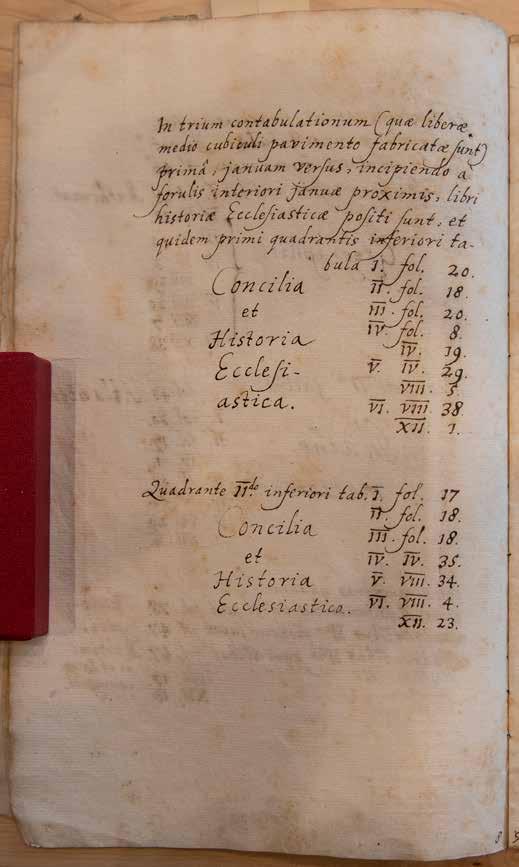 In trium contabulationum (quæ liberæ
medio cubiculi pavimento fabricatæ sunt)
primâ, januam versus, incipiendo a
forulis interiori januæ proximis, libri
historiæ Ecclesiasticæ positi sunt, et
quidem primi quadrantis inferiori ta-
bula I. fol. 20.
Concilia II. fol. 18.
et III. fol. 20.
IV. fol. 8.
Historia IV. 19.
Ecclesi- V. IV. 29.
VIII. 5.
astica. VI. VIII 38.
XII. 1.
Quadrante II.do inferiori tab. I. fol. 17
II. fol. 18.
Concilia III. fol. 18.
et IV. IV. 35.
Historia V. VIII. 34.
Ecclesiastica. VI. VIII. 4.
XII. 23.
8